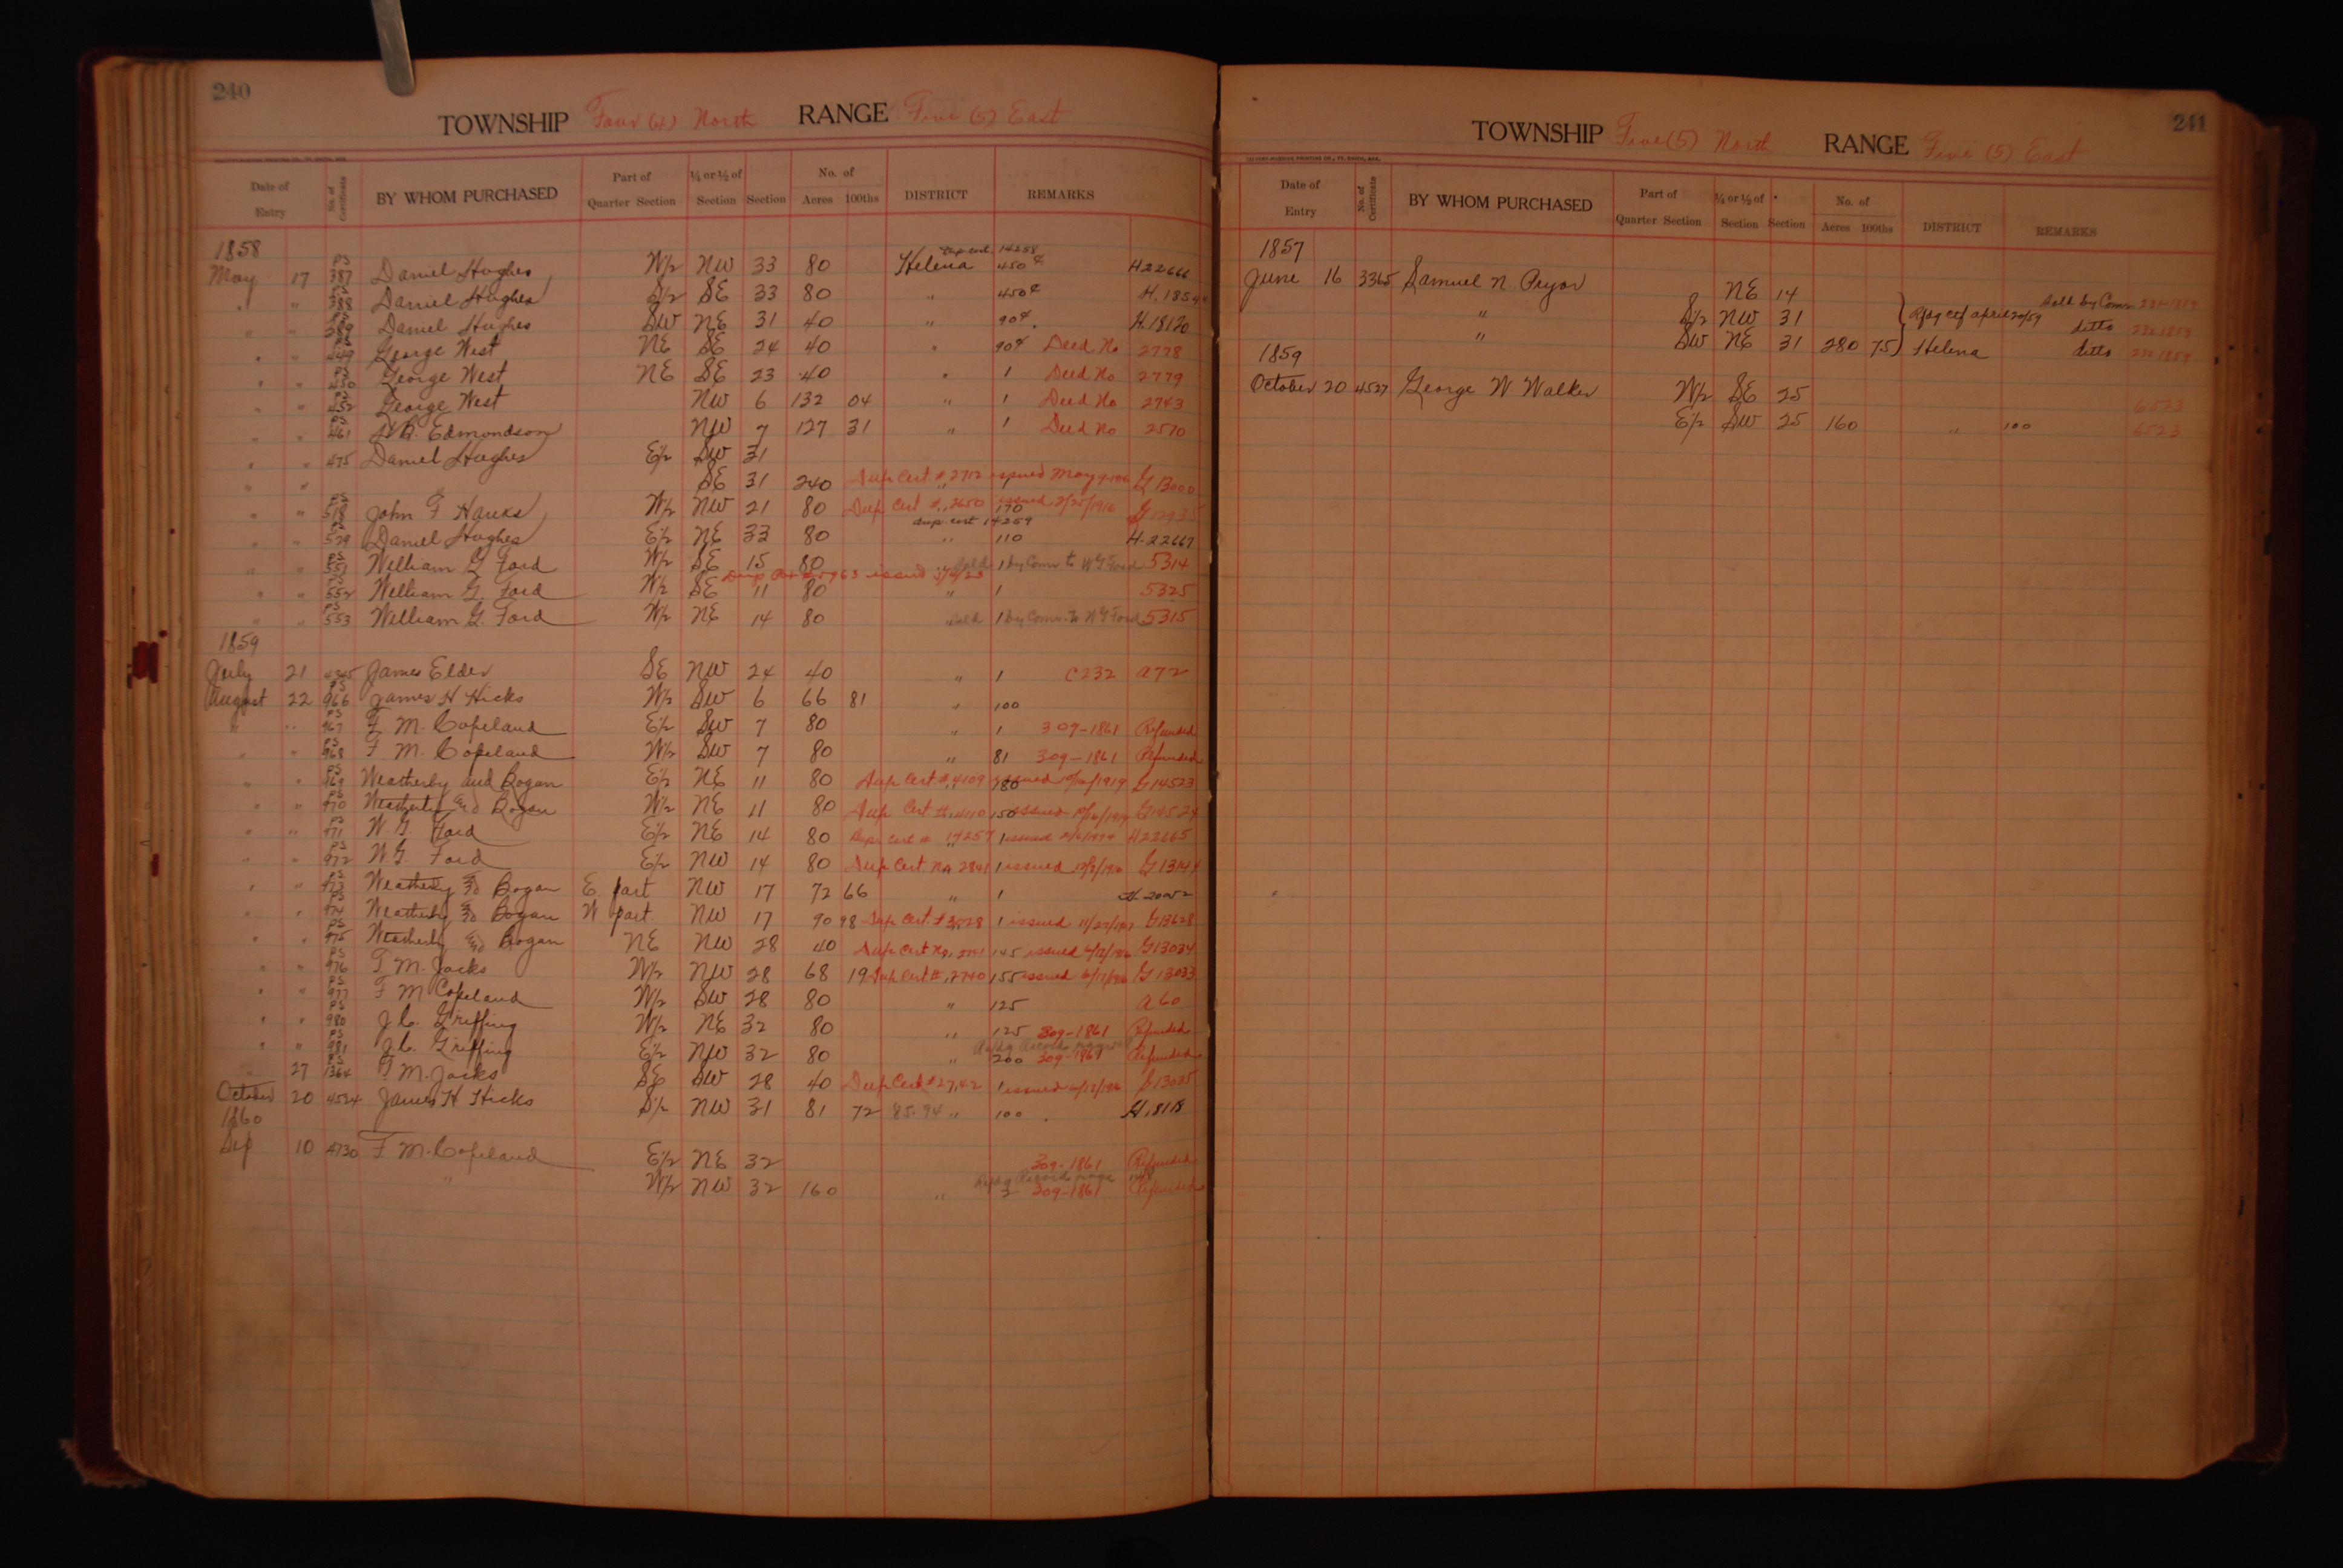 240
TOWNSHIP Four (4) North RANGE Five (5) East
Date of Entry No. of Certificate BY WHOM PURCHASED Part of Quarter Section ¼ or ½ of Section Section No. of Acres 100ths DISTRICT REMARKS
1858 Dup. cert. 14258
May 17 PS 387 Daniel Hughes W½ NW 33 80 Helena 450¢ H22666
" " PS 388 Daniel Hughes S½ SE 33 80 " 450¢ H. 1854
" " PS 389 Daniel Hughes SW NE 31 40 " 90¢ H.18120
" " PS 449 George West NE SE 24 40 " 90¢ Deed No 2778
" " PS 450 George West NE SE 23 40 " 1 Deed No 2779
" " PS 452 George West NW 6 132 04 " 1 Deed No 2743
" " PS 461 Edmondson NW 7 127 31 " 1 Deed No 2570
" " 475 Daniel Hughes E½ SW 31
" " " SE 31 240 Dup Cert # 2712 issued May G 13000
" " PS 518 John F Hanks W½ NW 21 80 Dup Cert # 2650 issued 2/25/1916 170
dup. cert 14259
" " PS 529 Daniel Hughes E½ NE 33 80 " 110 H-22667
" " PS 551 William G Ford W½ SE 15 80 " Sold 1 by Comr to W G Ford 5314
" " PS 552 William G. Ford W½ SE 11 80 " 1 5325
" " PS 553 William G. Ford W½ NE 14 80 " Sold 1 by Comr. to W G Ford 5315
1859
July 21 James Elder SE NW 24 40 " 1 C232 A72
August 22 PS 966 James H Hicks W½ SW 6 66 81 " 100
" " PS 967 F M. Copeland E½ SW 7 80 " 1 309-1861 Refunded
" " PS 968 F M. Copeland W½ SW 7 80 " 81 309-1861 Refunded
" " PS 969 Weatherby and Bogan E½ NE 11 80 Dup Cert # 4109 issued 10/16/1919 780 G14523
" " PS 970 Weatherby and Bogan W½ NE 11 80 Dup Cert # 4110 150 issued 10/16/1919 G14524
" " PS 971 W. G. Ford E½ NE 14 80 Dup. Cert # 14257 1 issued H22665
" " PS 972 W. G. Ford E½ NW 14 80 Dup Cert. No 2841 1 issued G13144
" " PS 973 Weatherby and Bogan E part NW 17 72 66 " 1 H.20052
" " PS 974 Weatherby and Bogan W part. NW 17 90 98 Dup Cert. # 1 issued 11/22/1917 G13628
" " PS 975 Weatherby and Bogan NE NW 28 40 Dup Cert No. 2741 145 issued 6/12/1916 G13034
" " PS 976 F. M. Jacks W½ NW 28 68 19 Dup Cert #, 2740 155 issued 6/12/1916 G 13033
" " PS 977 F M Copeland W½ SW 28 80 " 125 A 60
" " PS 980 J. C. Griffing W½ NE 32 80 " 125 309-1861 Refunded
" " PS 981 J. C. Griffing E½ NW 32 80 " 200 309-1861 Refunded
27 PS 1364 F M. Jacks SE SW 28 40 Dup Cert # 2742 1 issued 6/12/1916 G13035
October 20 4524 James H Hicks S½ NW 31 81 72 85.94 " 100 H.18118
1860
Sep 10 4730 F. M. Copeland E½ NE 32 309-1861 Refunded
" W½ NW 32 160 " 309-1861 Refunded
241
TOWNSHIP Five (5) North RANGE Five (5) East
Date of Entry No. of Certificate BY WHOM PURCHASED Part of Quarter Section ¼ or ½ of Section Section No. of Acres 100ths DISTRICT REMARKS
1857
June 16 3365 Samuel N. Pryor NE 14 Sold by Comr
" S½ NW 31 Rfdg ctf april 20/59 ditto
" SW NE 31 280 75 Helena ditto
1859
October 20 4527 George W Walker W½ SE 25 6523
E½ SW 25 160 " 100 6523